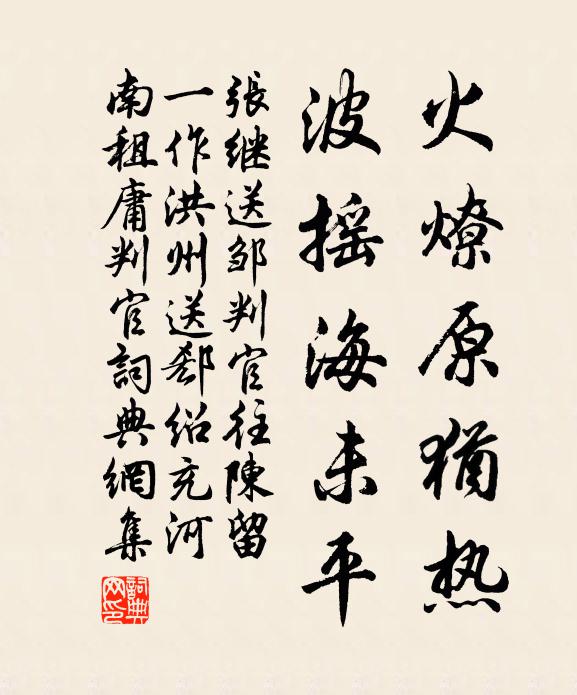 火燎原猶热
波摇海未平
張继送邹判官往陳留
一作洪州送郄绍充河
南租庸判官詞典網集
詞典網印